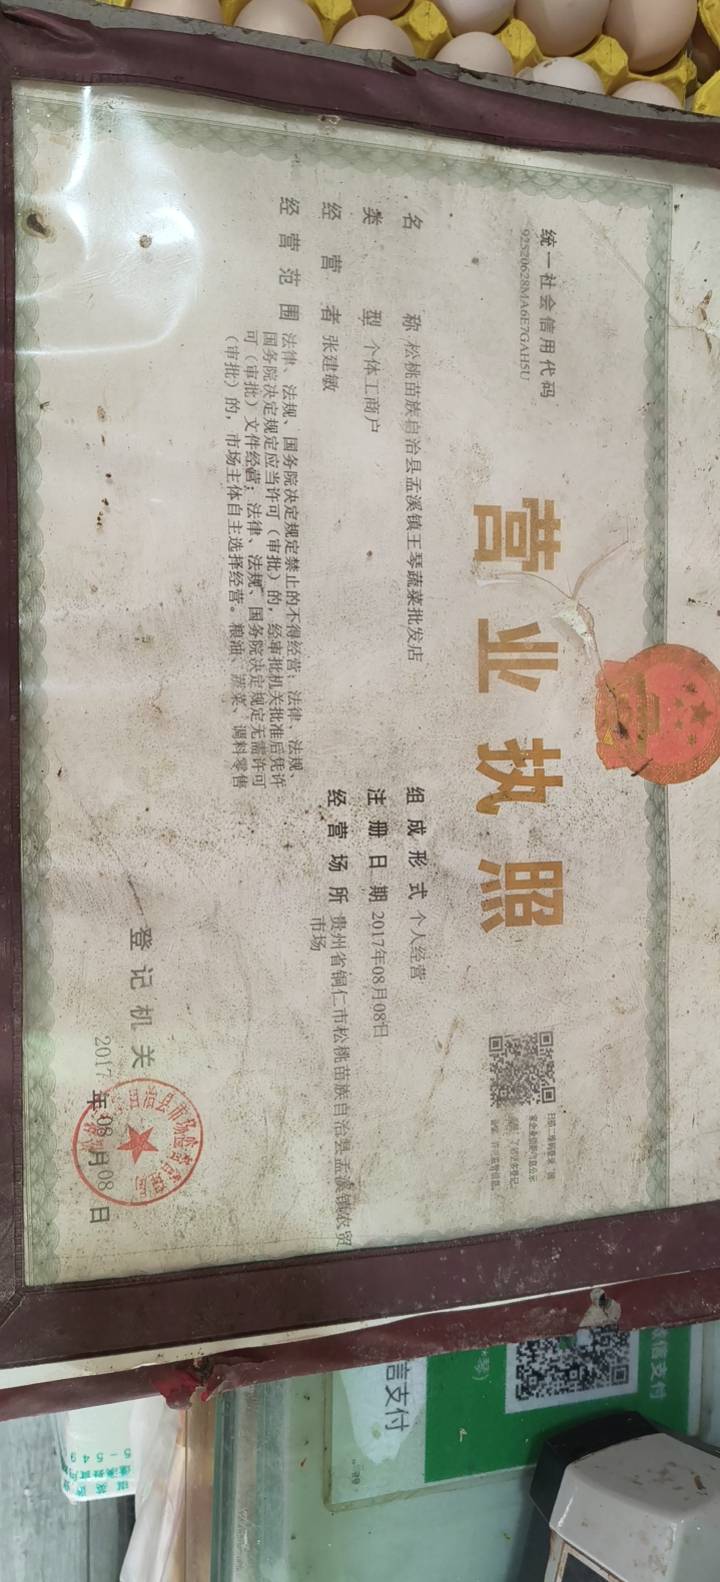 统一社会信用代码
92520628MA6E7GAH5U
营业执照
名 称 松桃苗族自治县孟溪镇王琴蔬菜批发店
类 型 个体工商户
经 营 者 张建敏
经 营 范 围 法律、法规、国务院决定规定禁止的不得经营；法律、法规、
国务院决定规定应当许可（审批）的，经审批机关批准后凭许
可（审批）文件经营；法律、法规、国务院决定规定无需许可
（审批）的，市场主体自主选择经营。粮油、蔬菜、调料零售
组 成 形 式 个人经营
注 册 日 期 2017年08月08日
经 营 场 所 贵州省铜仁市松桃苗族自治县孟溪镇农贸
市场
登 记 机 关
2017 年 08 月 08 日
信支付